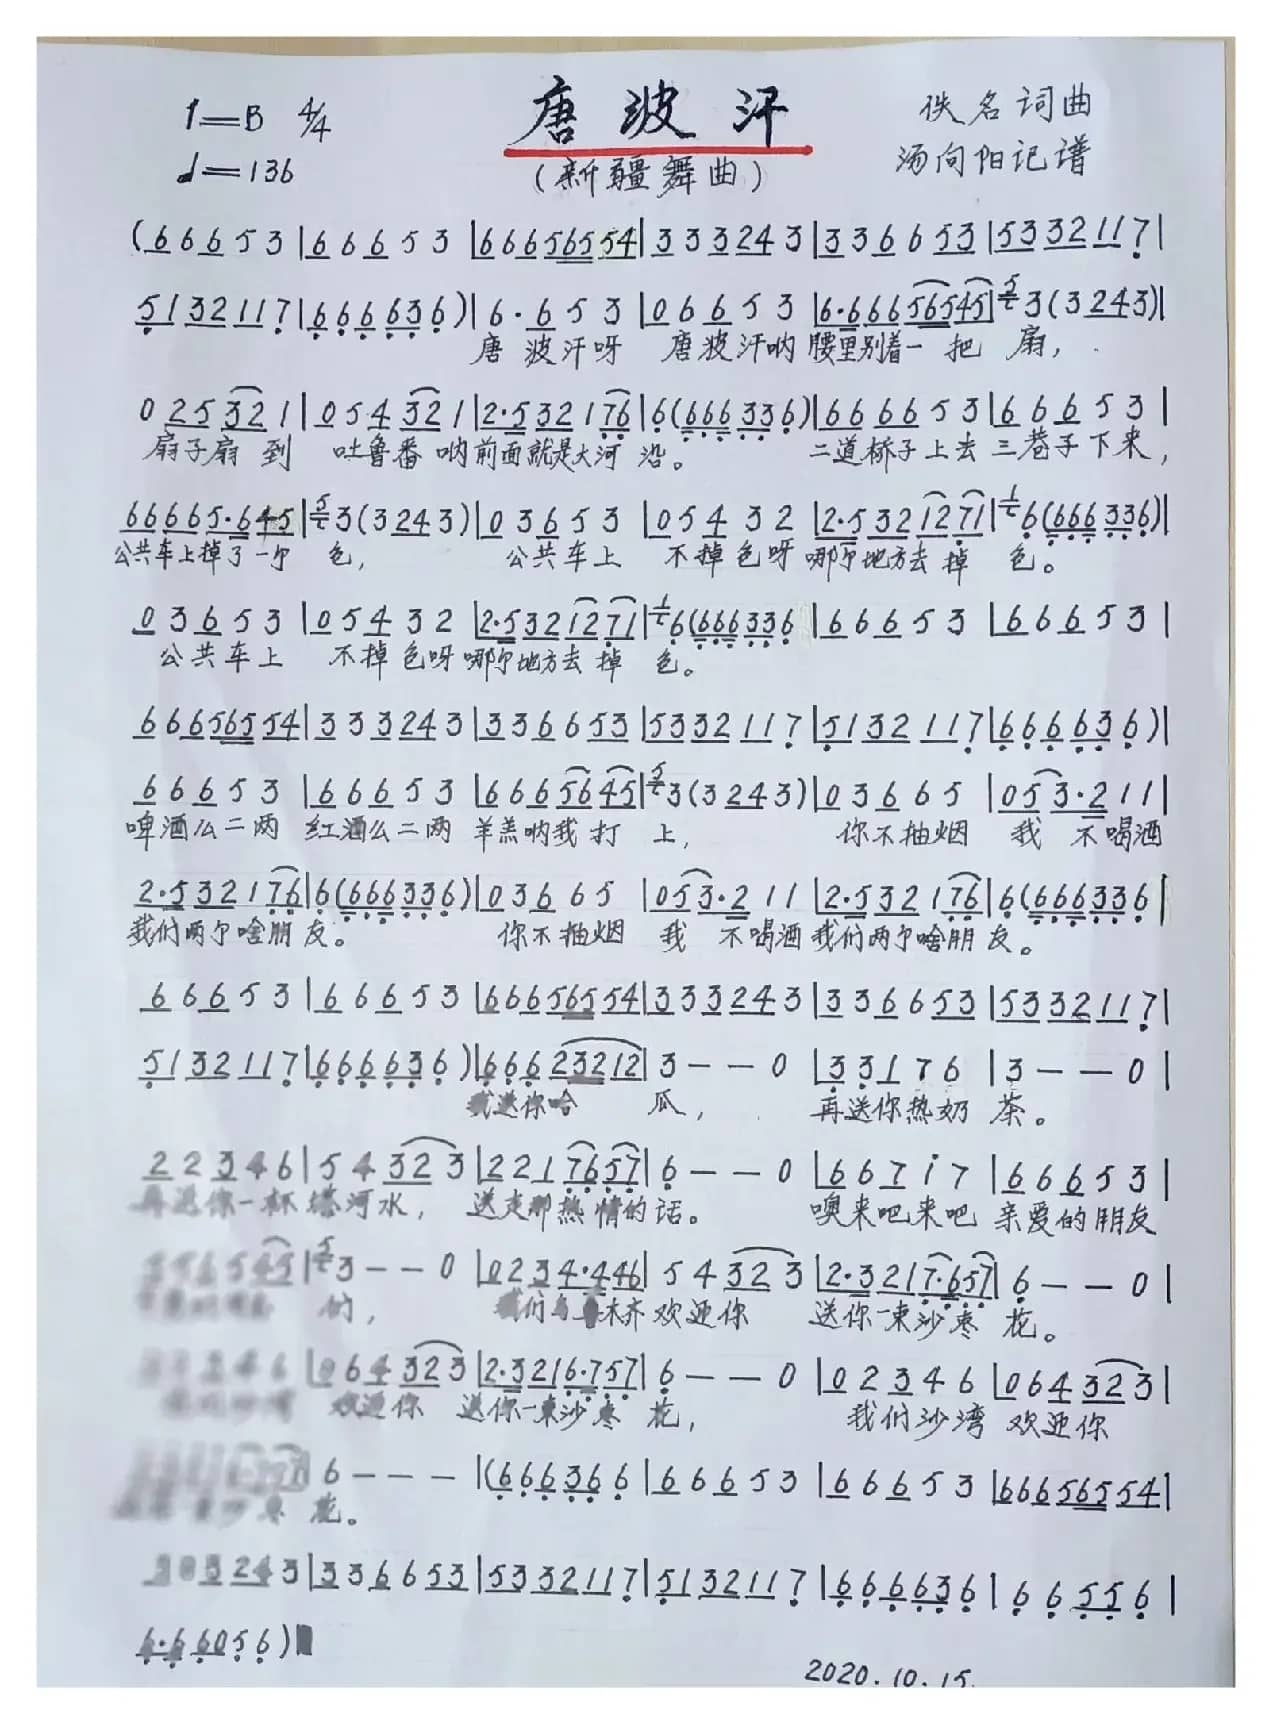 1=B 4/4 唐波汗 佚名词曲
♩=136 (新疆舞曲) 汤向阳记谱
(66653|66653|66656554|333243|336653|5332117|
5132117|666636)|6·653|06653|6·66656545|5 3(3243)|
唐波汗呀 唐波汗呐 腰里别着一把扇，
025321|054321|2·532176|6(666336)|666653|66653|
扇子扇到 吐鲁番呐前面就是大河沿。 二道桥子上去三巷子下来，
66665·645|5 3(3243)|03653|05432|2·5321271|1 6(666336)|
公共车上掉了一个色， 公共车上 不掉色呀哪个地方去掉色。
03653|05432|2·5321271|1 6(666336|66653|66653|
公共车上 不掉色呀哪个地方去掉色。
66656554|333243|336653|5332117|5132117|666636)|
66653|66653|6665645|5 3(3243)|03665|053·211|
啤酒么二两 红酒么二两 羊羔呐我打上， 你不抽烟 我不喝酒
2·532176|6(666336)|03665|053·211|2·532176|6(666336|
我们两个啥朋友。 你不抽烟 我不喝酒我们两个啥朋友。
66653|66653|66656554|333243|336653|5332117|
5132117|666636)|66623212|3--0|33176|3--0|
我送你哈瓜， 再送你热奶茶。
22346|54323|2217657|6--0|66717|66653|
再送你一杯塔河水， 送走那热情的话。 噢来吧来吧 亲爱的朋友
|5 3--0|0234·446|54323|2·3217·657|6--0|
们， 我们乌 木齐欢迎你 送你一束沙枣花。
246|064323|2·3216·757|6--0|02346|064323|
欢迎你 送你一束沙枣花， 我们沙湾 欢迎你
|6---|(666366|66653|66653|66656554|
沙枣花。
3243|336653|5332117|5132117|666636|66556|
6·66056)||
2020.10.15